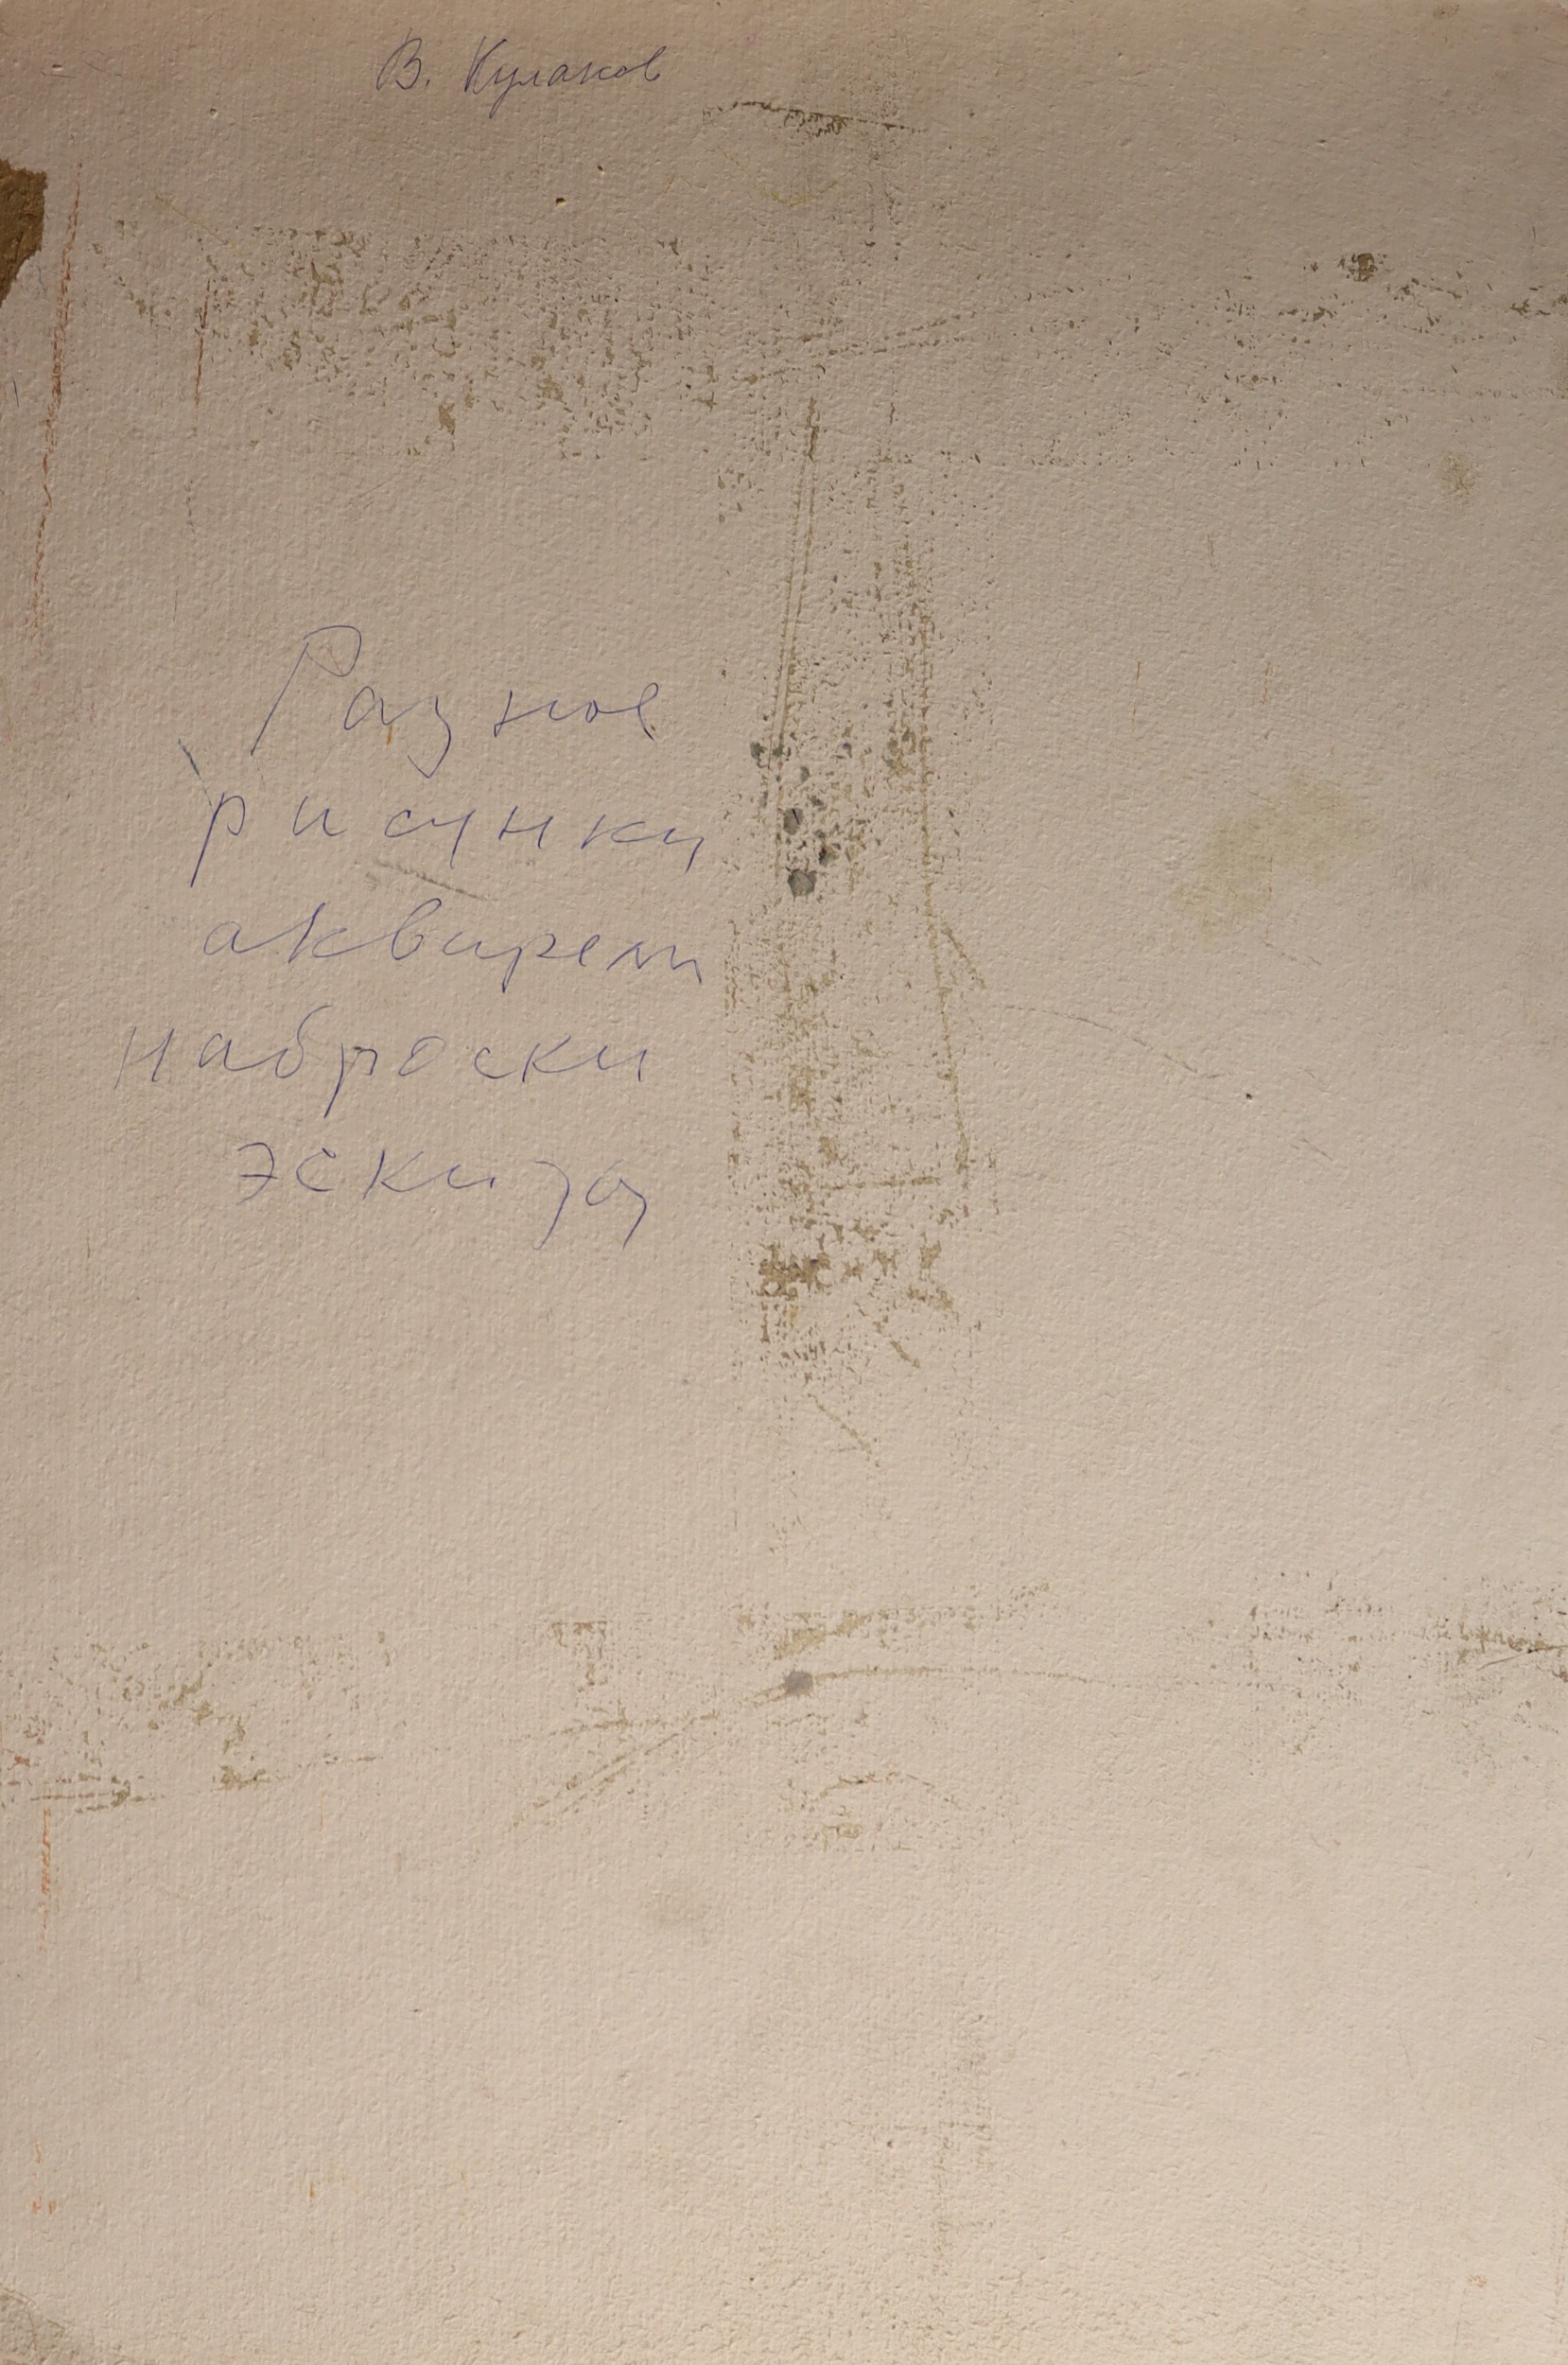 В. Кулаков
Разное
рисунки
аквирели
наброски
эскизы